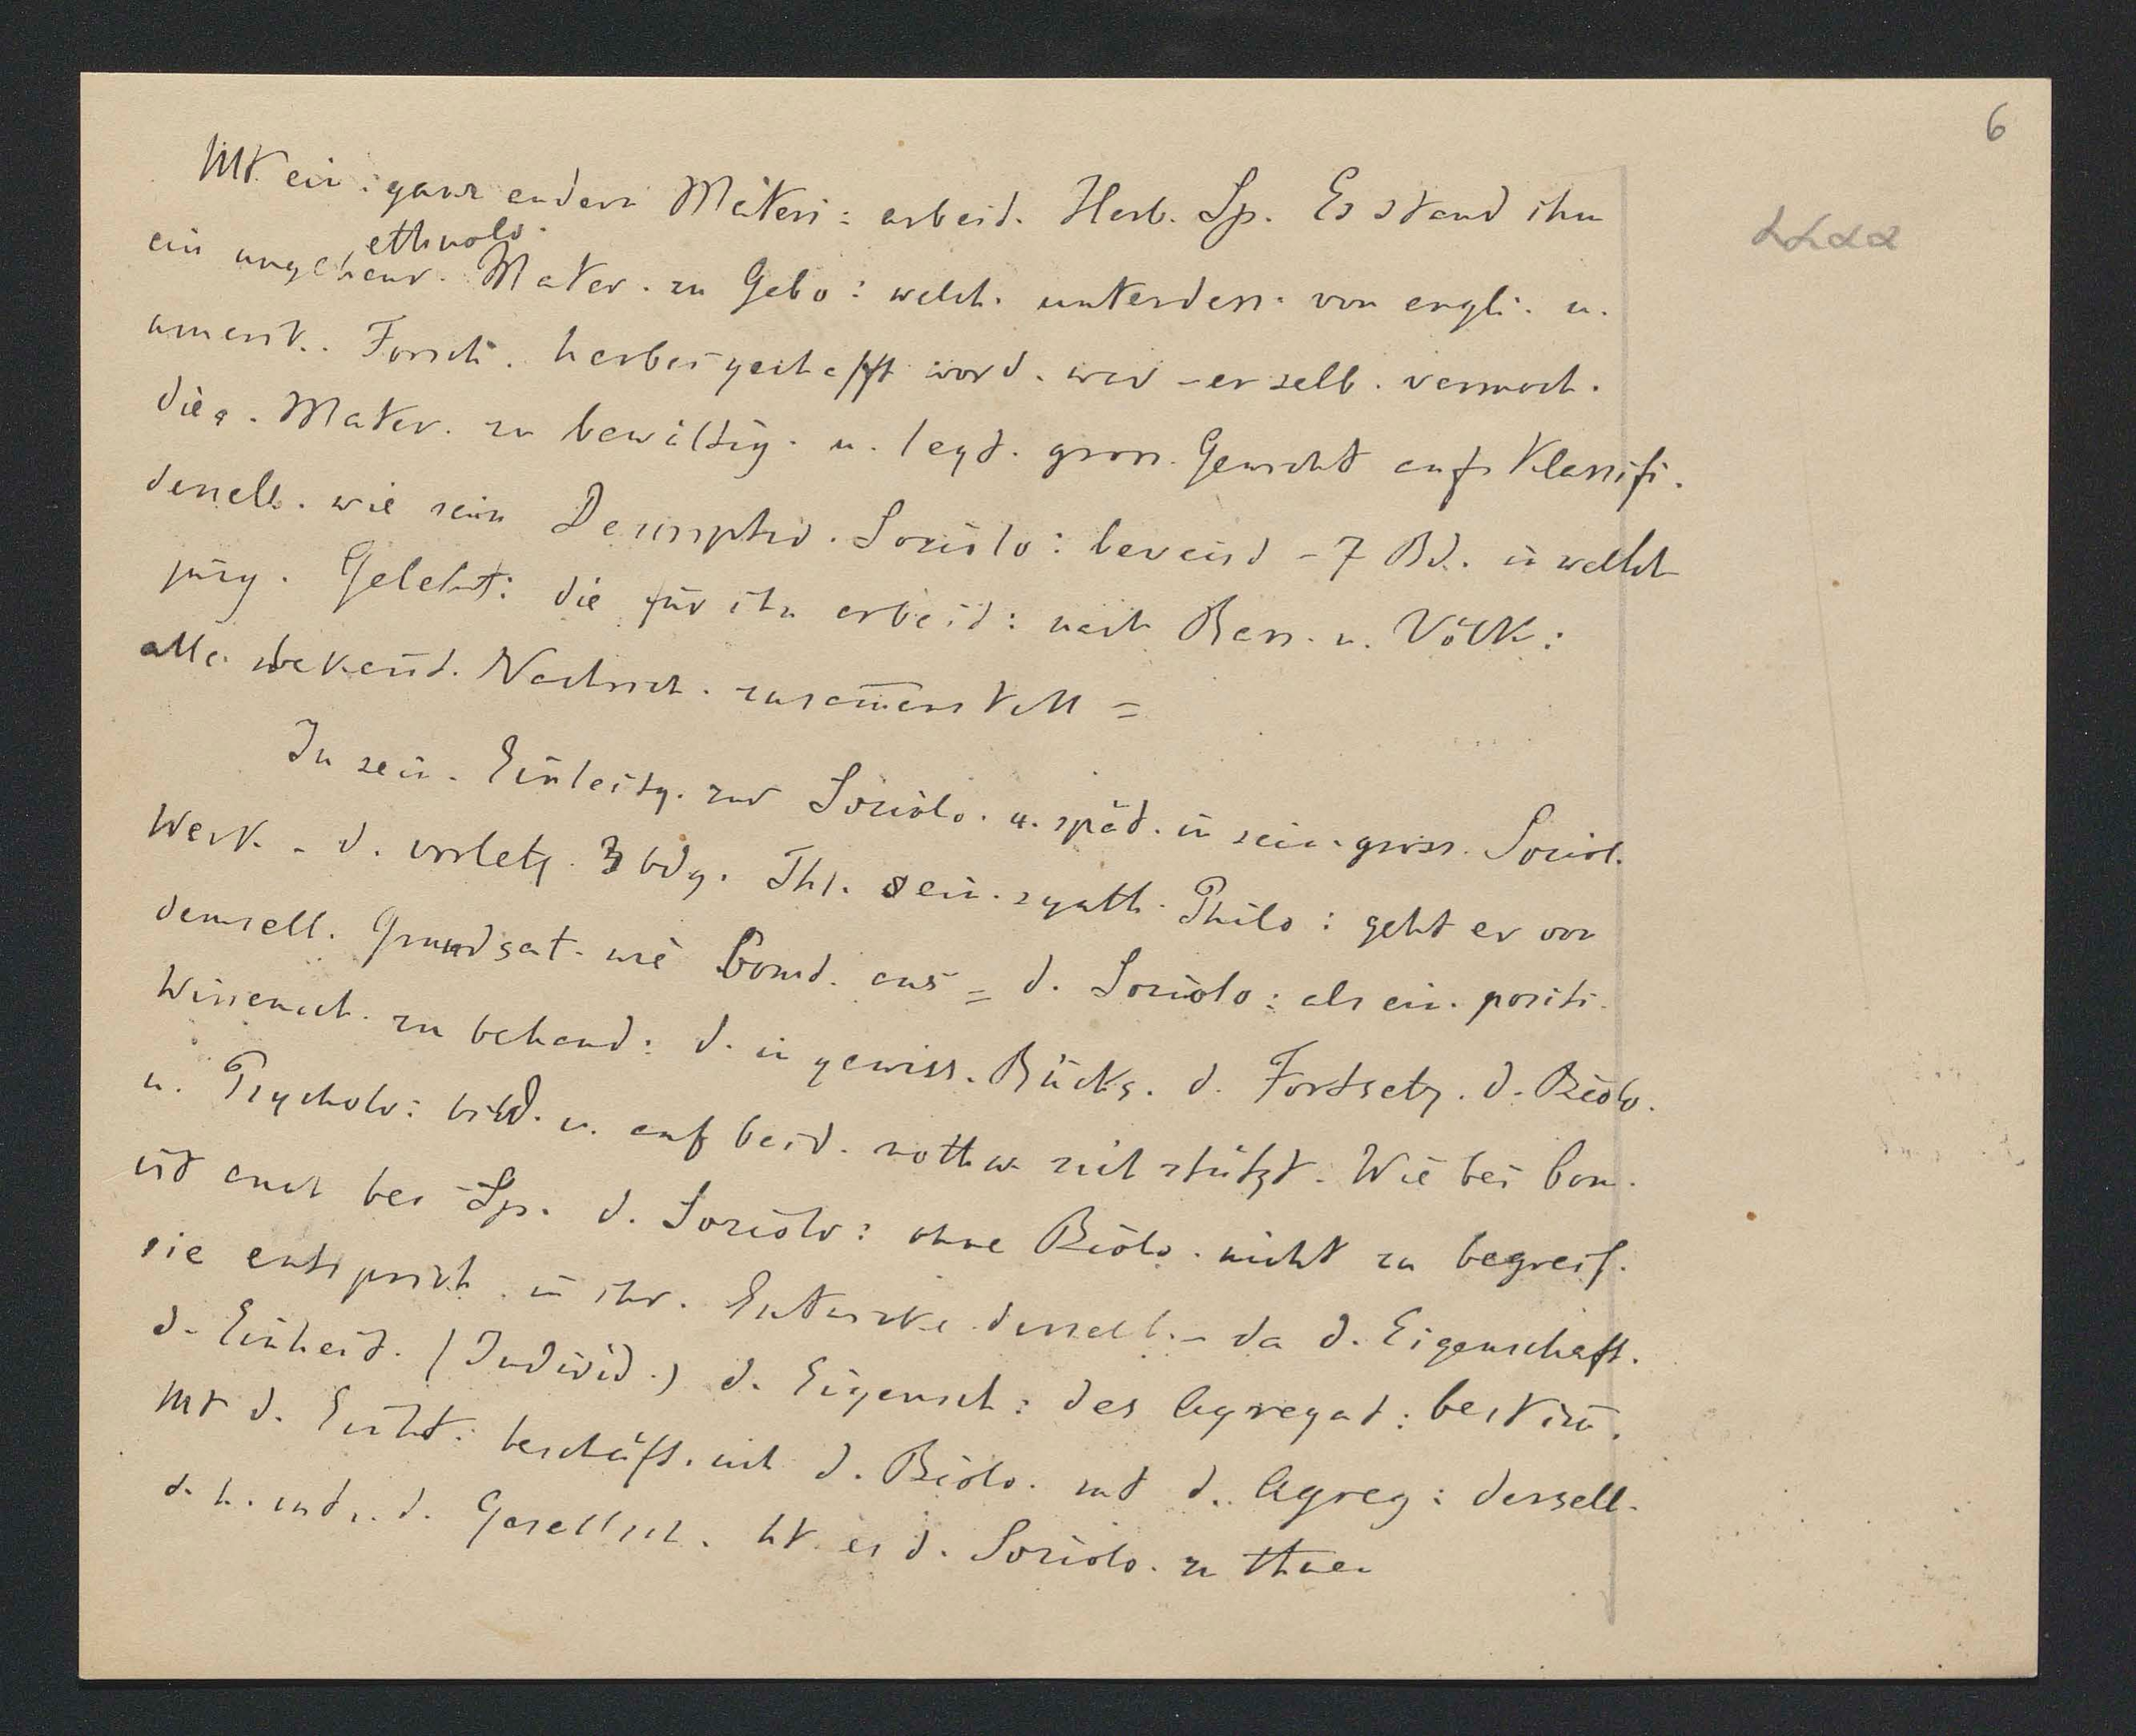 6
Mt ein: ganz andern Materi: arbeit. Herb. Sp. Es stand ihm
ethnolo.
ein ungeheur. Mater. zu Gebo: welch. unterdess. von engli. u.
amerik. Forsch. herbeigeschafft word. war - er selb. vermoch.
dies. Mater. zu bewältig. u. legt. gross. Gewicht aufs Klassifi.
dessell. wie sein Descriptiv. Soziolo: beweist - 7 Bd. in welch
jüng. Gelehrt: die für ihn arbeit: nach Rass. u. Völk:
alle bekannt. Nachrich. zusam̄enstell =
In sein. Einleitg. zur Soziolo. u. spät. in sein. gross. Soziol.
Werk. - d. vorletz. 3 bdg. Thl. sein. synth. Philo: geht er von
demsell. Grundsat. wie Comt. aus = d. Soziolo: als ein. positi.
Wissensch. zu behand: d. in gewiss. Rücks. d. Fortsetz. d. Biolo.
u. Psycholo: bild. u. auf beid. nothw sich stützt. Wie bei Com.
ist auch bei Sp. d. Soziolo: ohne Biolo. nicht zu begreif.
sie entsprich. in ihr. Entwicke dersell. - da d. Eigenschaft.
d. Einheit. (Individ.) d. Eigensch: des Agregat: bestim̄.
Mt d. Einht: beschäft. sich d. Biolo. mt d. Agreg: dersell.
d. h. mt d. Gesellsch. ht es d. Soziolo. zu thuen